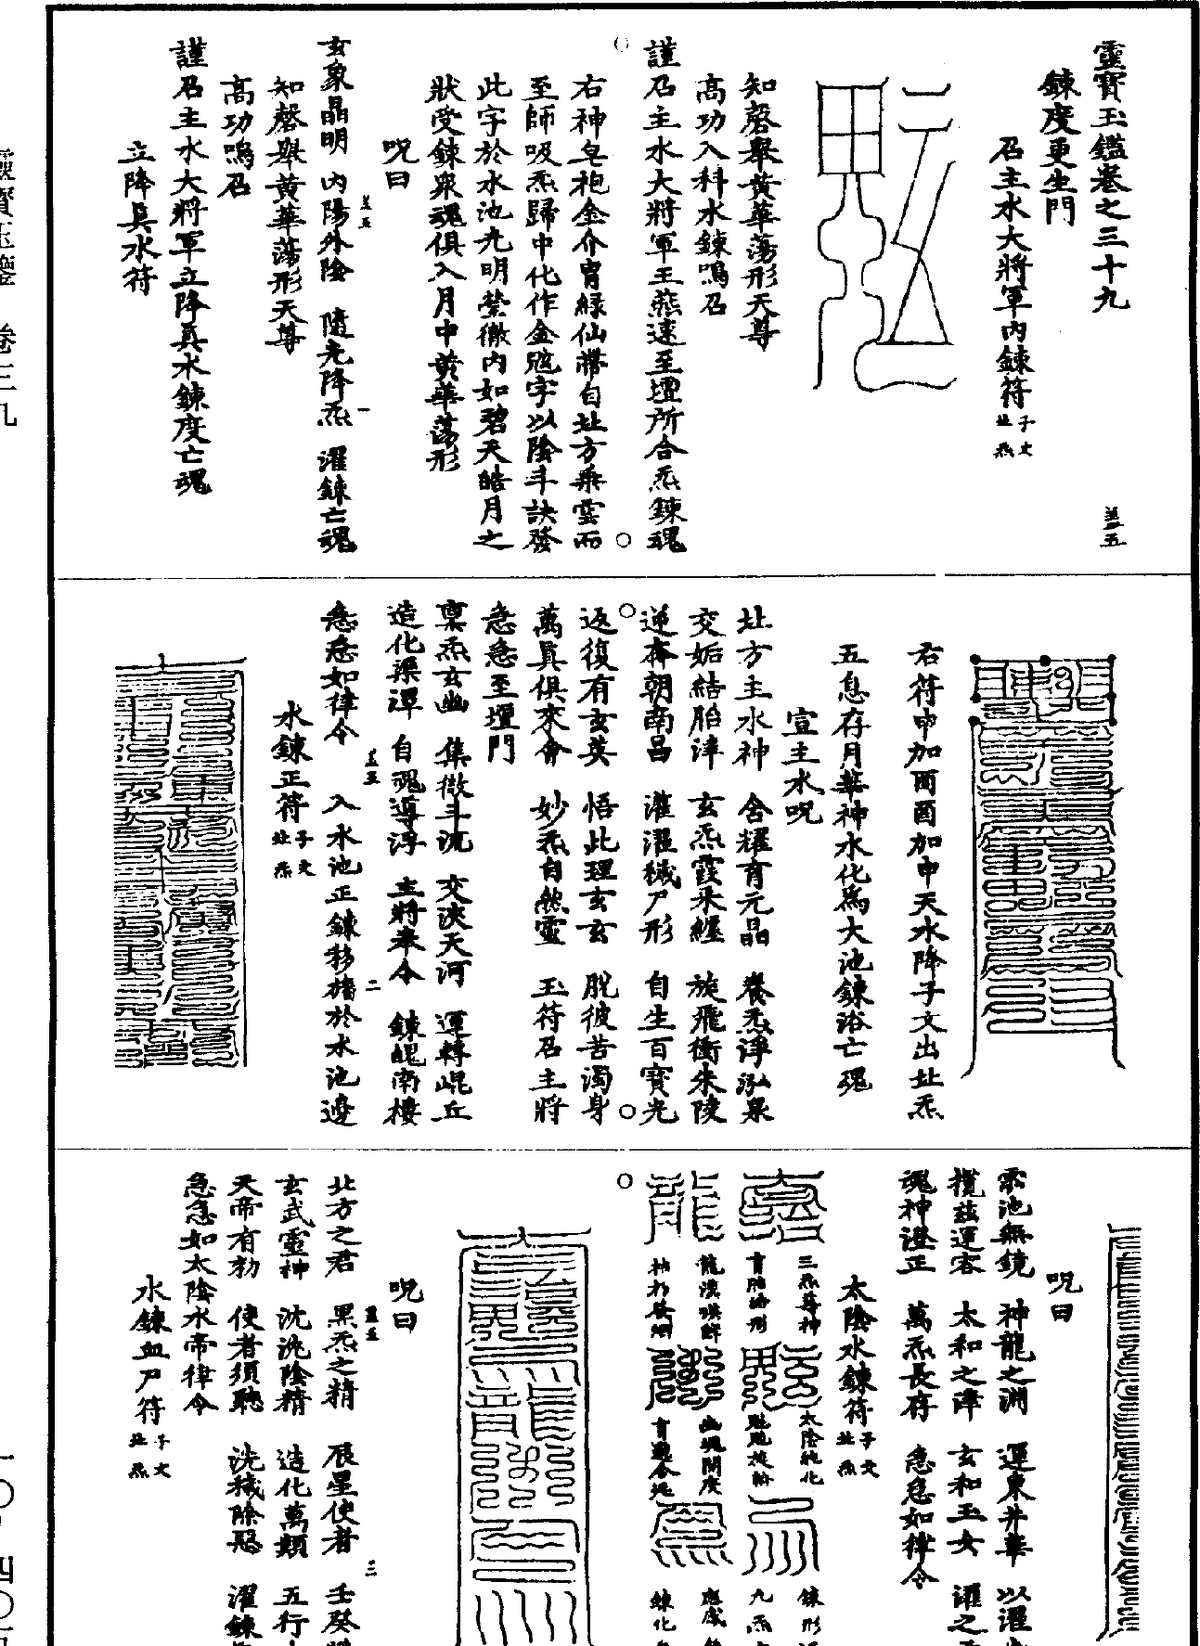 靈寶玉鑑卷之三十九
鍊度更生門
召主水大將軍內鍊符
子文
北炁
知磬舉黃華蕩形天尊
高功入科水鍊鳴召
謹召主水大將軍王燕速至壇所合炁鍊魂
右神皂袍金介冑綠仙帶自北方乘雲而
至師吸炁歸中化作金 字以陰斗訣發
此字於水池光明瑩徹內如碧天皓月之
狀受鍊衆魂俱入月中黃華蕩形
呪曰
玄象晶明 內陽外陰 隨光降炁 濯鍊亡魂
知磬舉黃華蕩形天尊
高功鳴召
謹召主水大將軍立降真水鍊度亡魂
立降真水符
右符申加酉酉加申天水降子文出北炁
五息存月華神水化為大池鍊浴亡魂
宣主水呪
北方主水神 含耀育元晶 養炁浮泓泉
交姤結胎津 玄炁霞采纏 旋飛衝朱陵
逆奔朝南昌 灌濯穢尸形 自生百寶光
返復有玄英 悟此理玄玄 脫彼苦濁身
萬真俱來會 妙炁自然靈 玉符召主將
急急至壇門
稟炁玄幽 集微斗沈 交浹天河 運轉崐丘
造化梁潭 自魂導浮 主將奉令 鍊魄南樓
急急如律令 入水池正鍊移旛於水池邊
水鍊正符
子文
北炁
呪曰
霈池無鏡 神龍之淵 運東井華
攬茲運客 太和之津 玄和玉女
魂神澄正 萬炁長存 急急如律令
太陰水鍊符
子文
北炁
三炁尊神
育胎 形
龍漢 
太陰純化
幽魂開度
鍊形
九炁
鍊化
呪曰
北方之君 黑炁之精 辰星使者 壬癸
玄武靈神 沈沈陰精 造化萬類 五行
天帝有勑 使者須聽 洗穢除惡 濯鍊
急急如太陰水帝律令
水鍊血尸符
子文
北炁